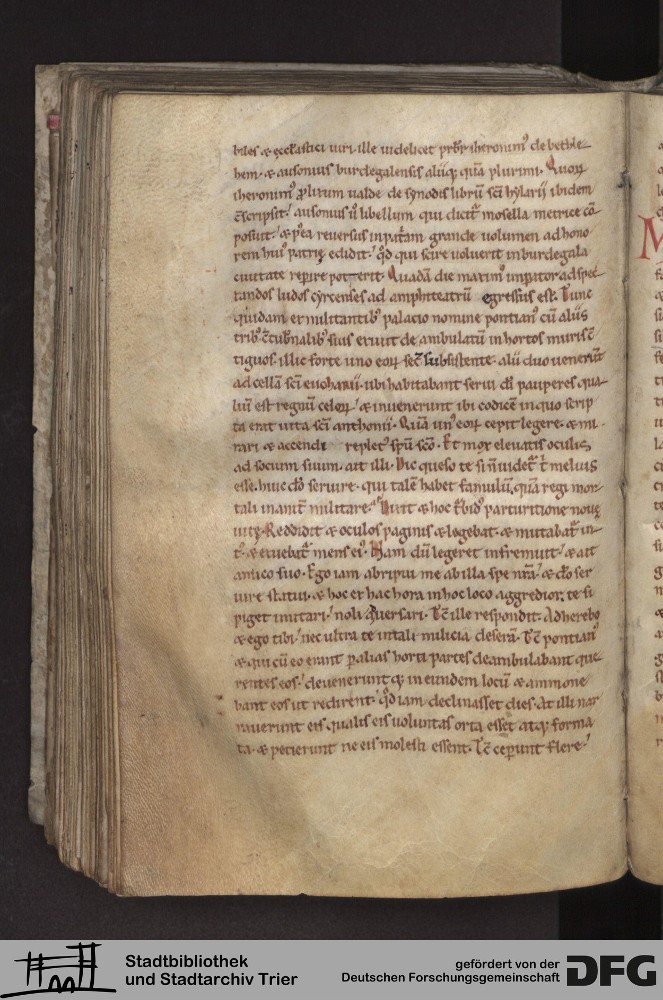 biles & ęccłastici uiri ille uidelicet prb̄r iheronim᾿ de bethle
hem. & ausonius burdegalensis aliiq; quā plurimi. Quoꝝ
iheronim᾿ ꝓlixum ualde de synodis librū sc̄i hylarii ibidem
c̄scripsit. ausonius ū libellum qui dicit᷑ mosella metrice cō
posuit. & p᾿ea reuersus in pat᷑am grande uolumen ad hono
rem hui᾿ patrię edidit. qd̄ qui scire uoluerit in burdegala
ciuitate repīre pot̄erit. Quadā die maxim᾿ imp̄ator ad spec
tandos ludos cyrcenses ad amphiteatrū egressus est. Tunc
quidam ex militantib᾿ palacio nomine pontian᾿ cū aliis
trib᾿ c̄tub̄nalib᾿ suis exiuit de ambulatū in hortos muris c̄
tiguos. illic forte uno eoꝝ sec̄ subsistente. alii duo uenerūt
ad cellā sc̄i eucharii. ubi habitabant serui dī pauperes qua
liū est regnū celoꝝ. & inuenerunt ibi codicē in quo scrip
ta erat uita sc̄i anthonii. Quā un᾿ eoꝝ cepit legere. & mi
rari & accendi replet᾿ sp̄u sc̄o. Et mox eleuatis oculis
ad socium suum. ait illi. Dic queso te si n̄ uidet᷑ t᷑ melius
esse. huic dō seruire. qui talē habet famulū, quā regi mor
tali inanit᷑ militare. Dixit & hoc t᷑bid᾿ parturitione nouę
uitę. Reddidit & oculos paginis & legebat. & mutabat᷑ in
t᾿. & exuebat᷑ mens ei᾿. Nam dū legeret infremuit. & ait
amico suo. Ego iam abripui me ab illa spe nr̄a. & dō ser
uire statui. & hoc ex hac hora in hoc loco aggredior. te si
piget imitari. noli aduersari. Tc̄ ille respondit. Adherebo
& ego tibi. nec ultra te in tali milicia deserā. Tc̄ pontian᾿
& qui cū eo erant p̄ alias horti partes deambulabant que
rentes eos. deuenerunt q; in eundem locū & ammone
bant eos ut redirent. qd̄ iam declinasset dies. At illi nar
rauerunt eis qualis eis uoluntas orta esset atq; forma
ta. & petierunt ne eis molesti essent. Tc̄ cep̄unt flere.
M
Stadtbibliothek
und Stadtarchiv Trier
gefördert von der
Deutschen Forschungsgemeinschaft
DFG